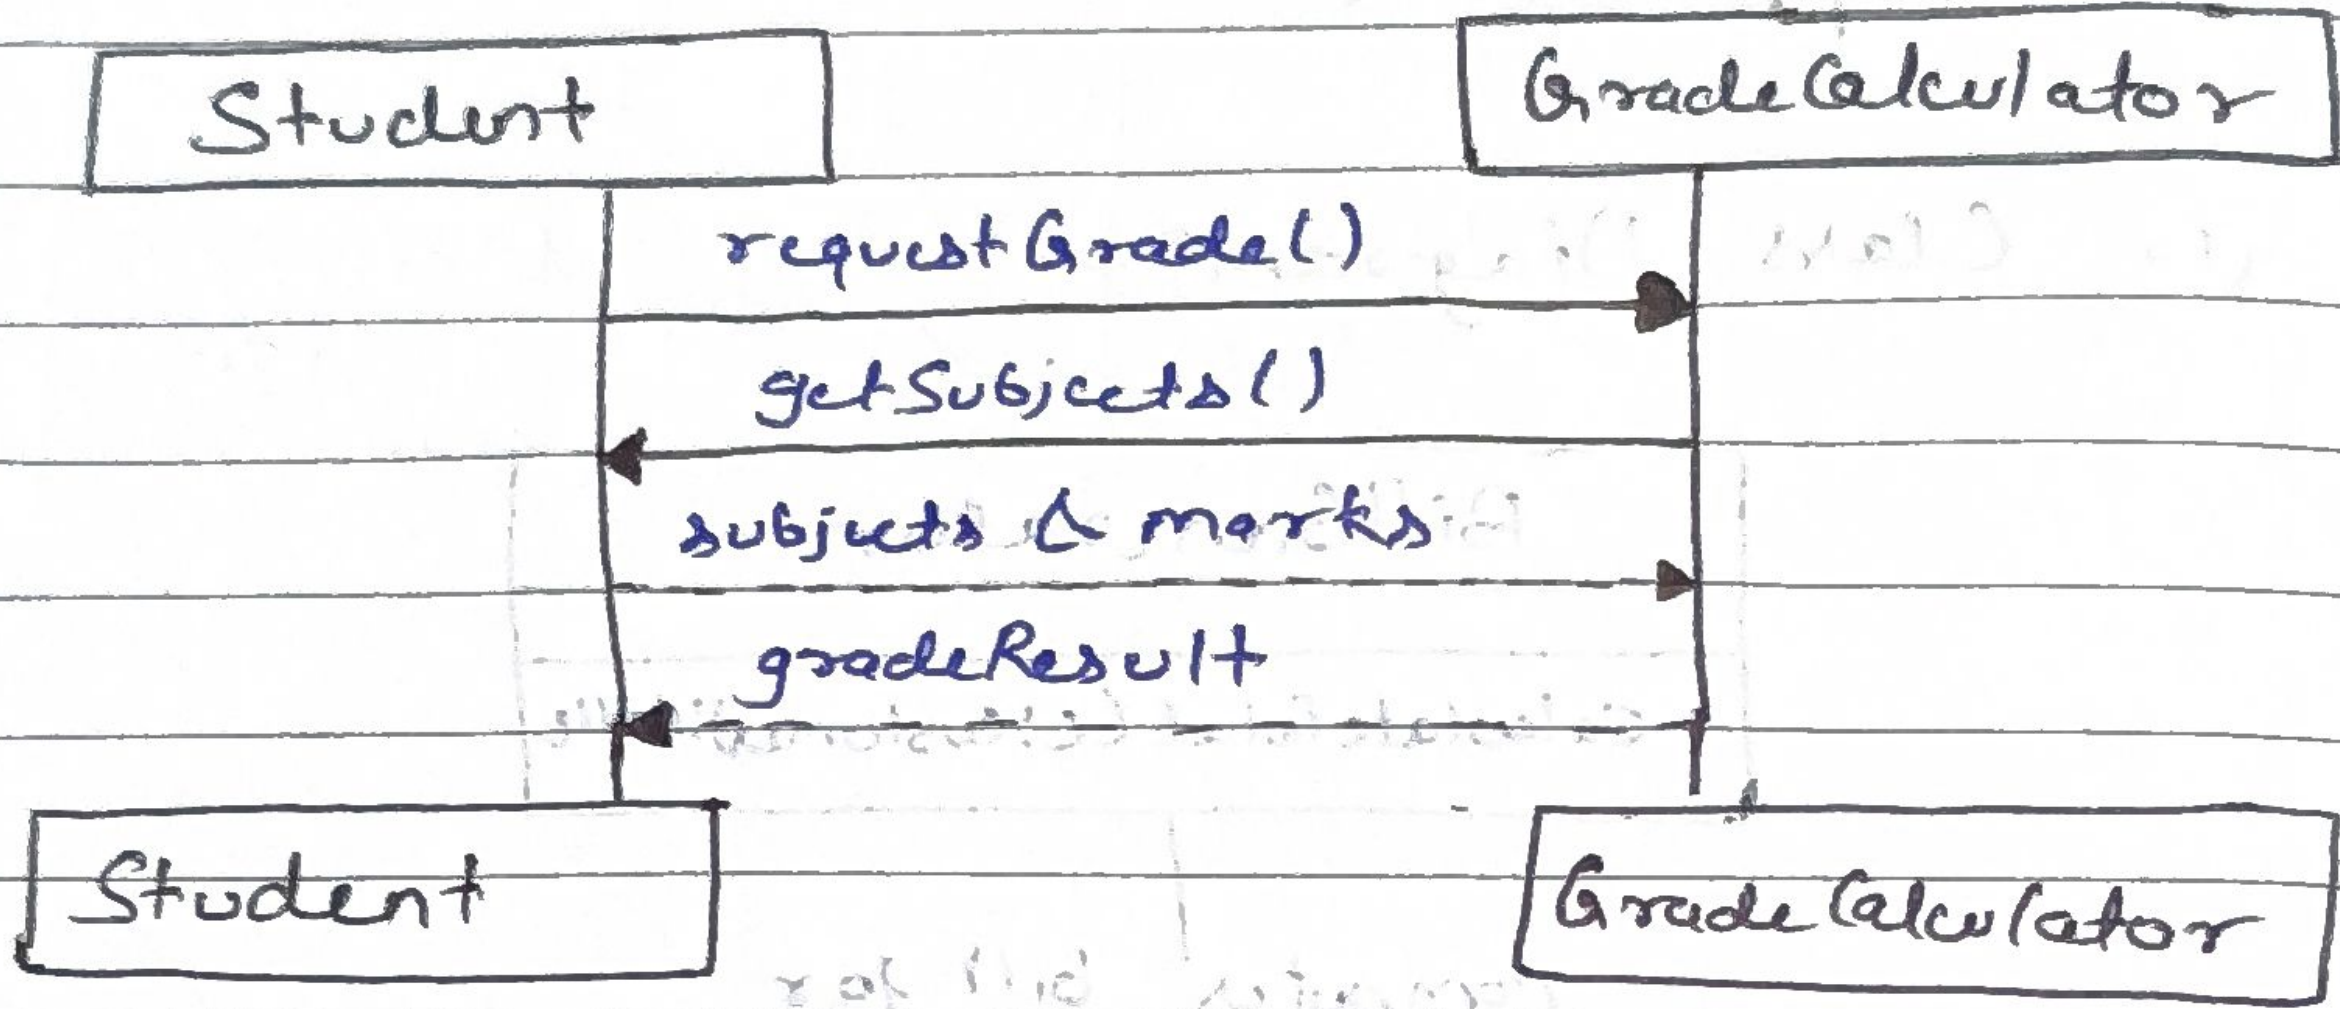 Student GradeCalculator
requestGrade()
getSubjects()
subjects & marks
gradeResult
Student GradeCalculator